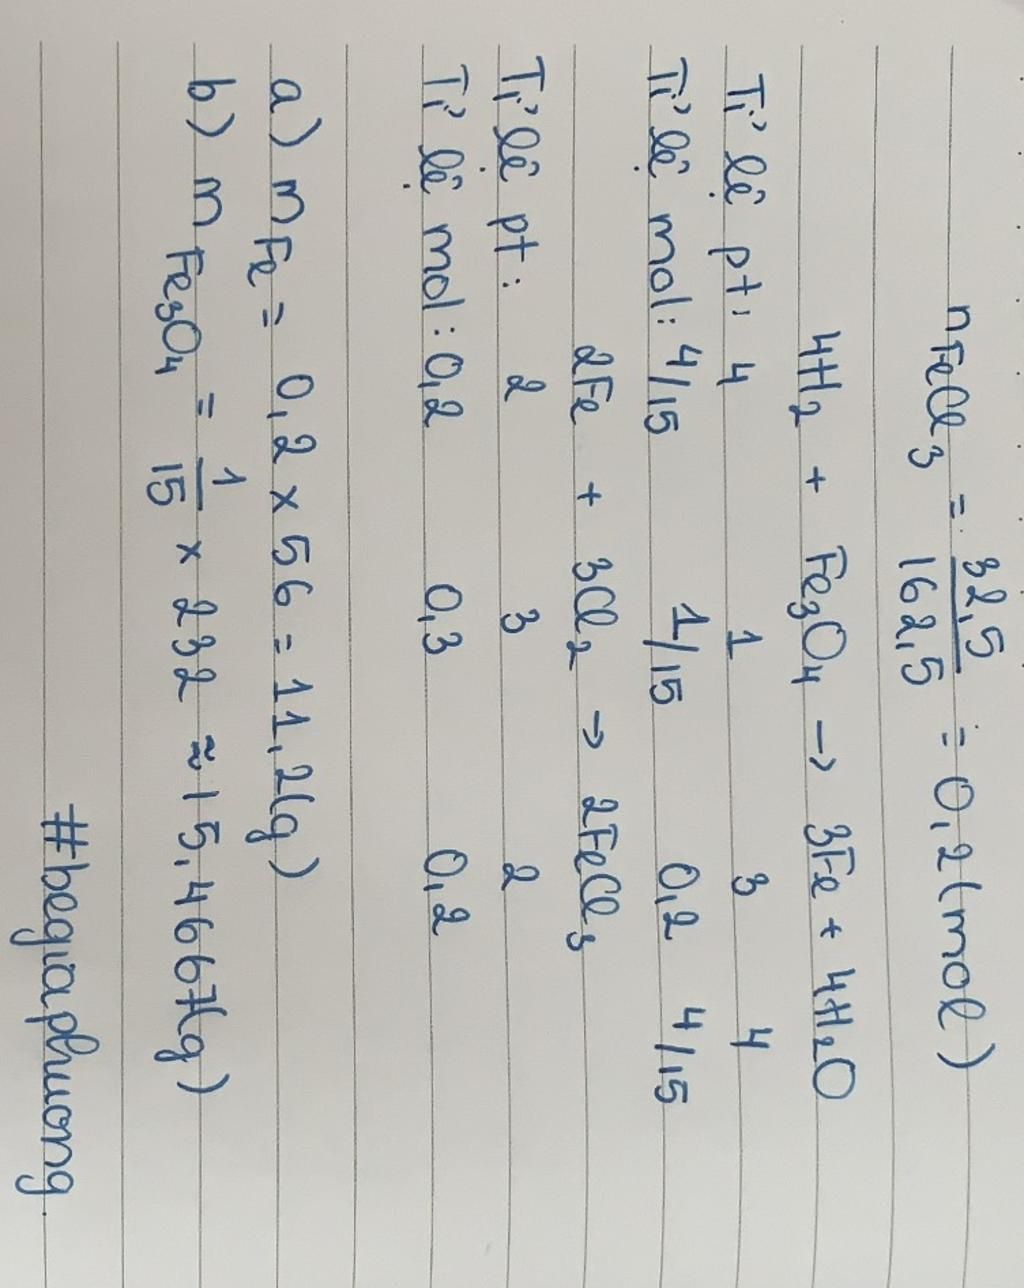 nFeCl3 = 32,5/162,5 = 0,2(mol)
4H2 + Fe3O4 → 3Fe + 4H2O
Tỉ lệ pt: 4 1 3 4
Tỉ lệ mol: 4/15 1/15 0,2 4/15
2Fe + 3Cl2 → 2FeCl3
Tỉ lệ pt: 2 3 2
Tỉ lệ mol: 0,2 0,3 0,2
a) mFe = 0,2 × 56 = 11,2(g)
b) mFe3O4 = 1/15 × 232 ≈ 15,4667(g)
#begiaphuong.